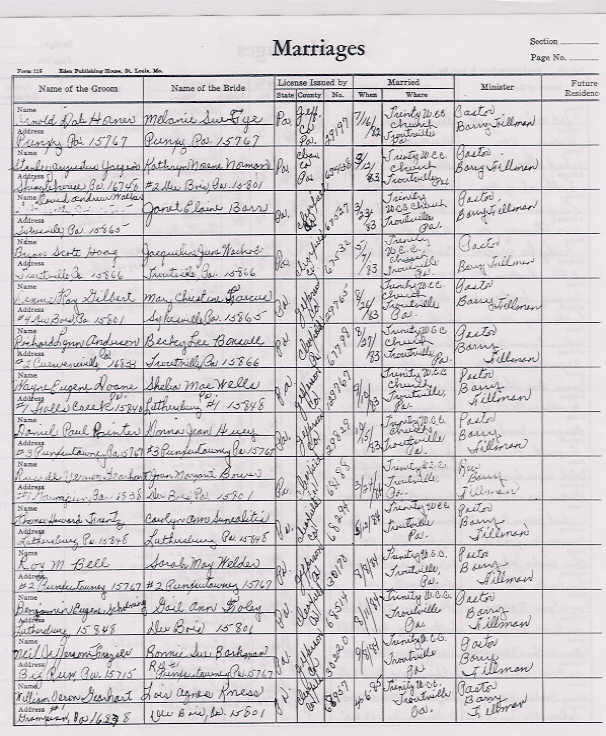 Marriages
Section
Page No.
Form 116 Eden Publishing House, St. Louis, Mo.
Name of the Groom Name of the Bride License Issued by Married Minister Future
State County No. When Where Residence
Name
Arnold Dale Horner Melanie Sue Tye Pa. Jeff. Co. Pa. 29197 7/16/82 Trinity U.C.C. Church Troutville Pa. Pastor Barry Fillman
Address
Punxy Pa. 15767 Punxy Pa. 15767
Name
Augustus Kathryn Norine Pa. Co. Pa. 3/12/83 Trinity U.C.C. Church Troutville Pa. Pastor Barry Fillman
Address
Pa. 16748 #2 Du Bois, Pa. 15801
Name
David Andrew Janet Elaine Barr Pa. Clearfield 67037 3/23/83 Trinity U.C.C. Church Troutville Pa. Pastor Barry Fillman
Address
Pa. 15865
Name
Brian Scott Hoag Jacqueline June Pa. Clearfield 5/7/83 Trinity U.C.C. Church Troutville Pa. Pastor Barry Fillman
Address
Troutville Pa. 15866 Troutville Pa. 15866
Name
Dennis Ray Gilbert Mary Christine Pa. Jefferson Co. 29765 8/26/83 Trinity U.C.C. Church Troutville Pa. Pastor Barry Fillman
Address
#4 Du Bois Pa. 15801 Sykesville Pa. 15865
Name
Richard Lynn Anderson Becky Lee Bonsall Pa. Clearfield 67798 8/27/83 Trinity U.C.C. Church Troutville Pa. Pastor Barry Fillman
Address
#2 Curwensville Pa. 16833 Troutville Pa. 15866
Name
Wayne Eugene Doane Shelia Mae Wells Pa. Jefferson Co. 29767 Trinity U.C.C. Church Troutville, Pa. Pastor Barry Fillman
Address
#1 Falls Creek 15840 Luthersburg Pa. #1 15848
Name
Daniel Paul Painter Donna Jean Huey Pa. Jefferson Co. 29829 Trinity U.C.C. Church Troutville Pa. Pastor Barry Fillman
Address
#3 Punxsutawney Pa. 15767 #3 Punxsutawney Pa 15767
Name
Vernon Gearhart Joan Margaret Bower Pa. Clearfield 68188 3/24/84 Trinity U.C.C. Troutville Pa. Rev Barry Fillman
Address
#1 Grampian, Pa. Du Bois Pa. 15801
Name
Thomas Howard Carolyn Ann Pa. Clearfield Co. 68294 5/12/84 Trinity U.C.C. Troutville Pa. Pastor Barry Fillman
Address
Luthersburg Pa. 15848 Luthersburg Pa. 15848
Name
Roy M. Bell Sarah May Welder Pa. Jefferson Co. 30170 8/4/84 Trinity U.C.C. Troutville, Pa. Pastor Barry Fillman
Address
#2 Punxsutawney 15767 #2 Punxsutawney 15767
Name
Benjamin Eugene Gail Ann Foley Pa. Clearfield 68514 8/11/84 Trinity U.C.C. Troutville Pa. Pastor Barry Fillman
Address
Luthersburg 15848 Du Bois 15801
Name
Neil Jefferson Frazier Bonnie Sue Barkman Pa. Jefferson Co. 30220 9/8/84 Trinity U.C.C. Troutville Pa. Pastor Barry Fillman
Address
Big Run, Pa. 15715 R.D. Punxsutawney Pa. 15767
Name
William Deron Gearhart Lois Agnes Kness Pa. Clearfield Co. 68937 4-6-85 Trinity U.C.C. Troutville Pa. Pastor Barry Fillman
Address
#1 Grampian, Pa 16838 Du Bois, Pa. 15801